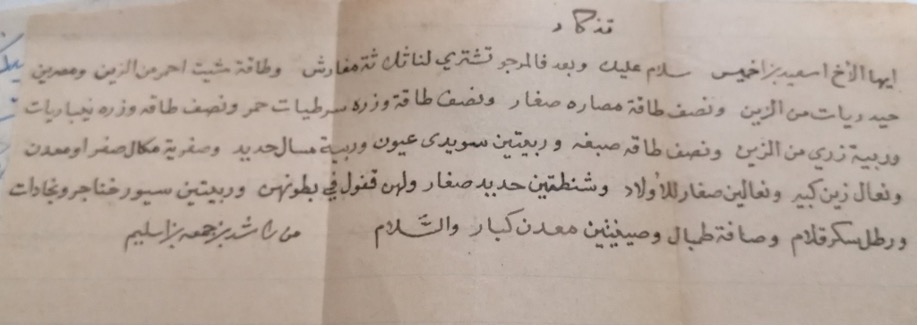 تذكار
ايها الأخ اسعيد بن اخميس سلام عليك وبعد فالمرجو تشتري لنا ثلاثة مفارش وطاقة شيت احمر من الزين ومصرين
حيدريات من الزين ونصف طاقة مصاره صغار ونصف طاقة وزره سرطيات حمر ونصف طاقه وزره نجباريات
وربية زري من الزين ونصف طاقه صبغه وربيعتين سويدى عيون وربية مسال حديد وصفرية مكال صفر او معدن
ونعال زين كبير ونعالين صغار للأولاد وشنطتين حديد صغار ولهن قفول في بطونهن وربيعتين سيور خناجر ونجادات
ورطل سكر قلام وصافة طبال وصينيتين معدن كبار والسَّلام من راشد بن جمعه بن اسليم